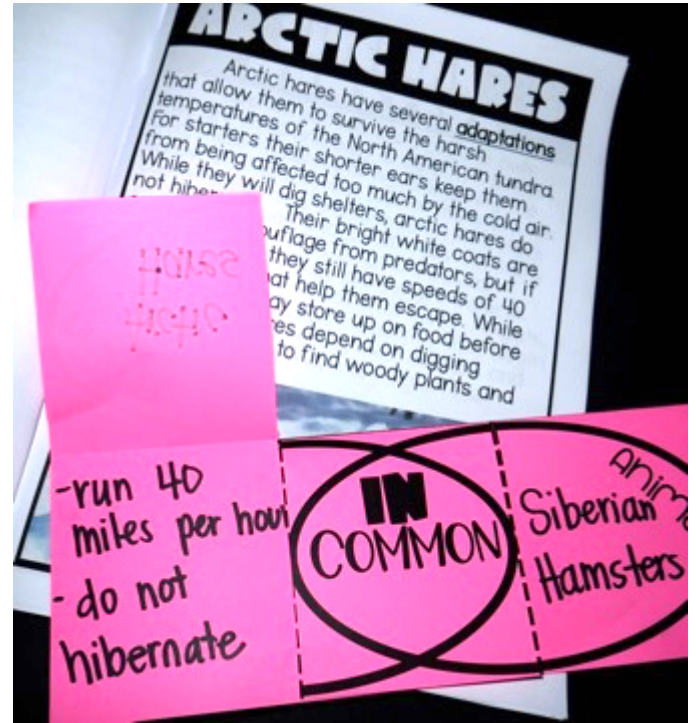 ARCTIC HARES
Arctic hares have several adaptations
that allow them to survive the harsh
temperatures of the North American tundra.
For starters their shorter ears keep them
from being affected too much by the cold air.
While they will dig shelters, arctic hares do
not
Their bright white coats are
from predators, but if
they still have speeds of 40
help them escape. While
store up on food before
depend on digging
to find woody plants and
-run 40
miles per hour
-do not
hibernate
IN
COMMON
Siberian
Hamsters